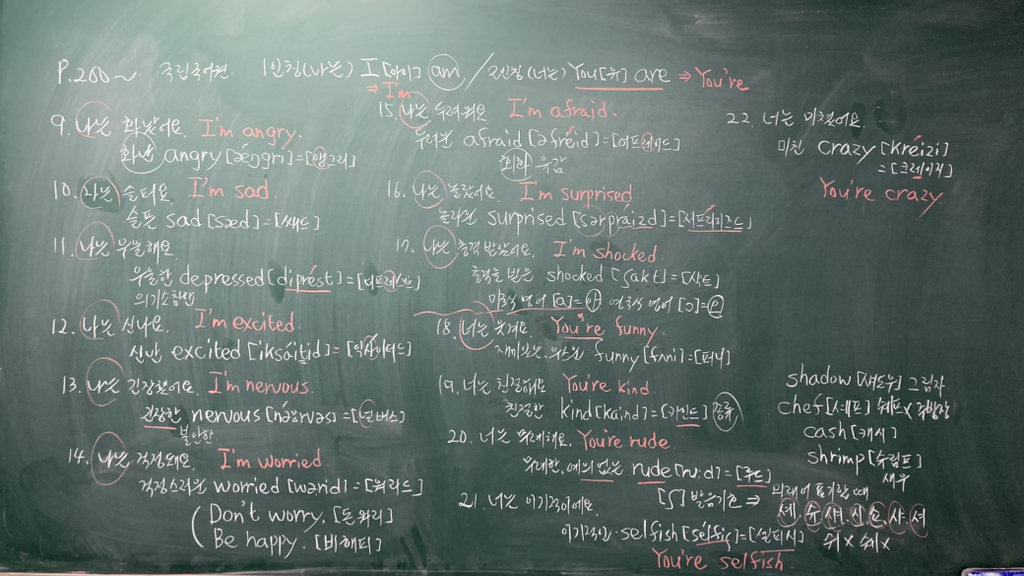 P.200~ 국립국어원. 1인칭(나는) I [아이] am / 2인칭(너는) You[유] are ⇒ You're
⇒ I'm
9. 나는 화났어요. I'm angry.
화난 angry [ǽŋgri]=[앵그리]
10. 나는 슬퍼요. I'm sad.
슬픈 sad [sæd]=[새드]
11. 나는 우울해요.
우울한 depressed [diprést]=[디프레스트]
의기소침한
12. 나는 신나요. I'm excited.
신난 excited [iksáitid]=[익사이티드]
13. 나는 긴장했어요. I'm nervous.
긴장한 nervous [nə́ːrvəs]=[너버스]
불안한
14. 나는 걱정돼요. I'm worried
걱정스러운 worried [wə́rid]=[워리드]
Don't worry. [돈 워리]
Be happy. [비 해피]
15. 나는 두려워요 I'm afraid.
두려운 afraid [əfréid]=[어프레이드]
유감
16. 나는 놀랐어요. I'm surprised
놀라운 surprised [sərpráizd]=[서프라이즈드]
17. 나는 충격 받았어요. I'm shocked
충격을 받은 shocked [ʃakt]=[샥트]
미국식 영어 [a]=아 영국식 영어 [ɔ]=오
18. 너는 웃겨요 You're funny.
재미있는, 웃기는 funny [fʌni]=[퍼니]
19. 너는 친절해요 You're kind.
친절한 kind [kaind]=[카인드] 종류
20. 너는 무례해요. You're rude
무례한, 예의 없는 rude [ruːd]=[루드]
21. 너는 이기적이에요.
이기적인 selfish [sélfiʃ]=[셀피시]
You're selfish.
22. 너는 미쳤어요.
미친 crazy [kréizi]
=[크레이지]
You're crazy
shadow [섀도우] 그림자
chef [셰프] 쉐프x 주방장
cash [캐시]
shrimp [슈림프]
새우
[ʃ] 발음기호 ⇒ 외래어 표기할 때
셰, 슈, 섀, 시, 쇼, 샤, 셔
쉬x 쉐x